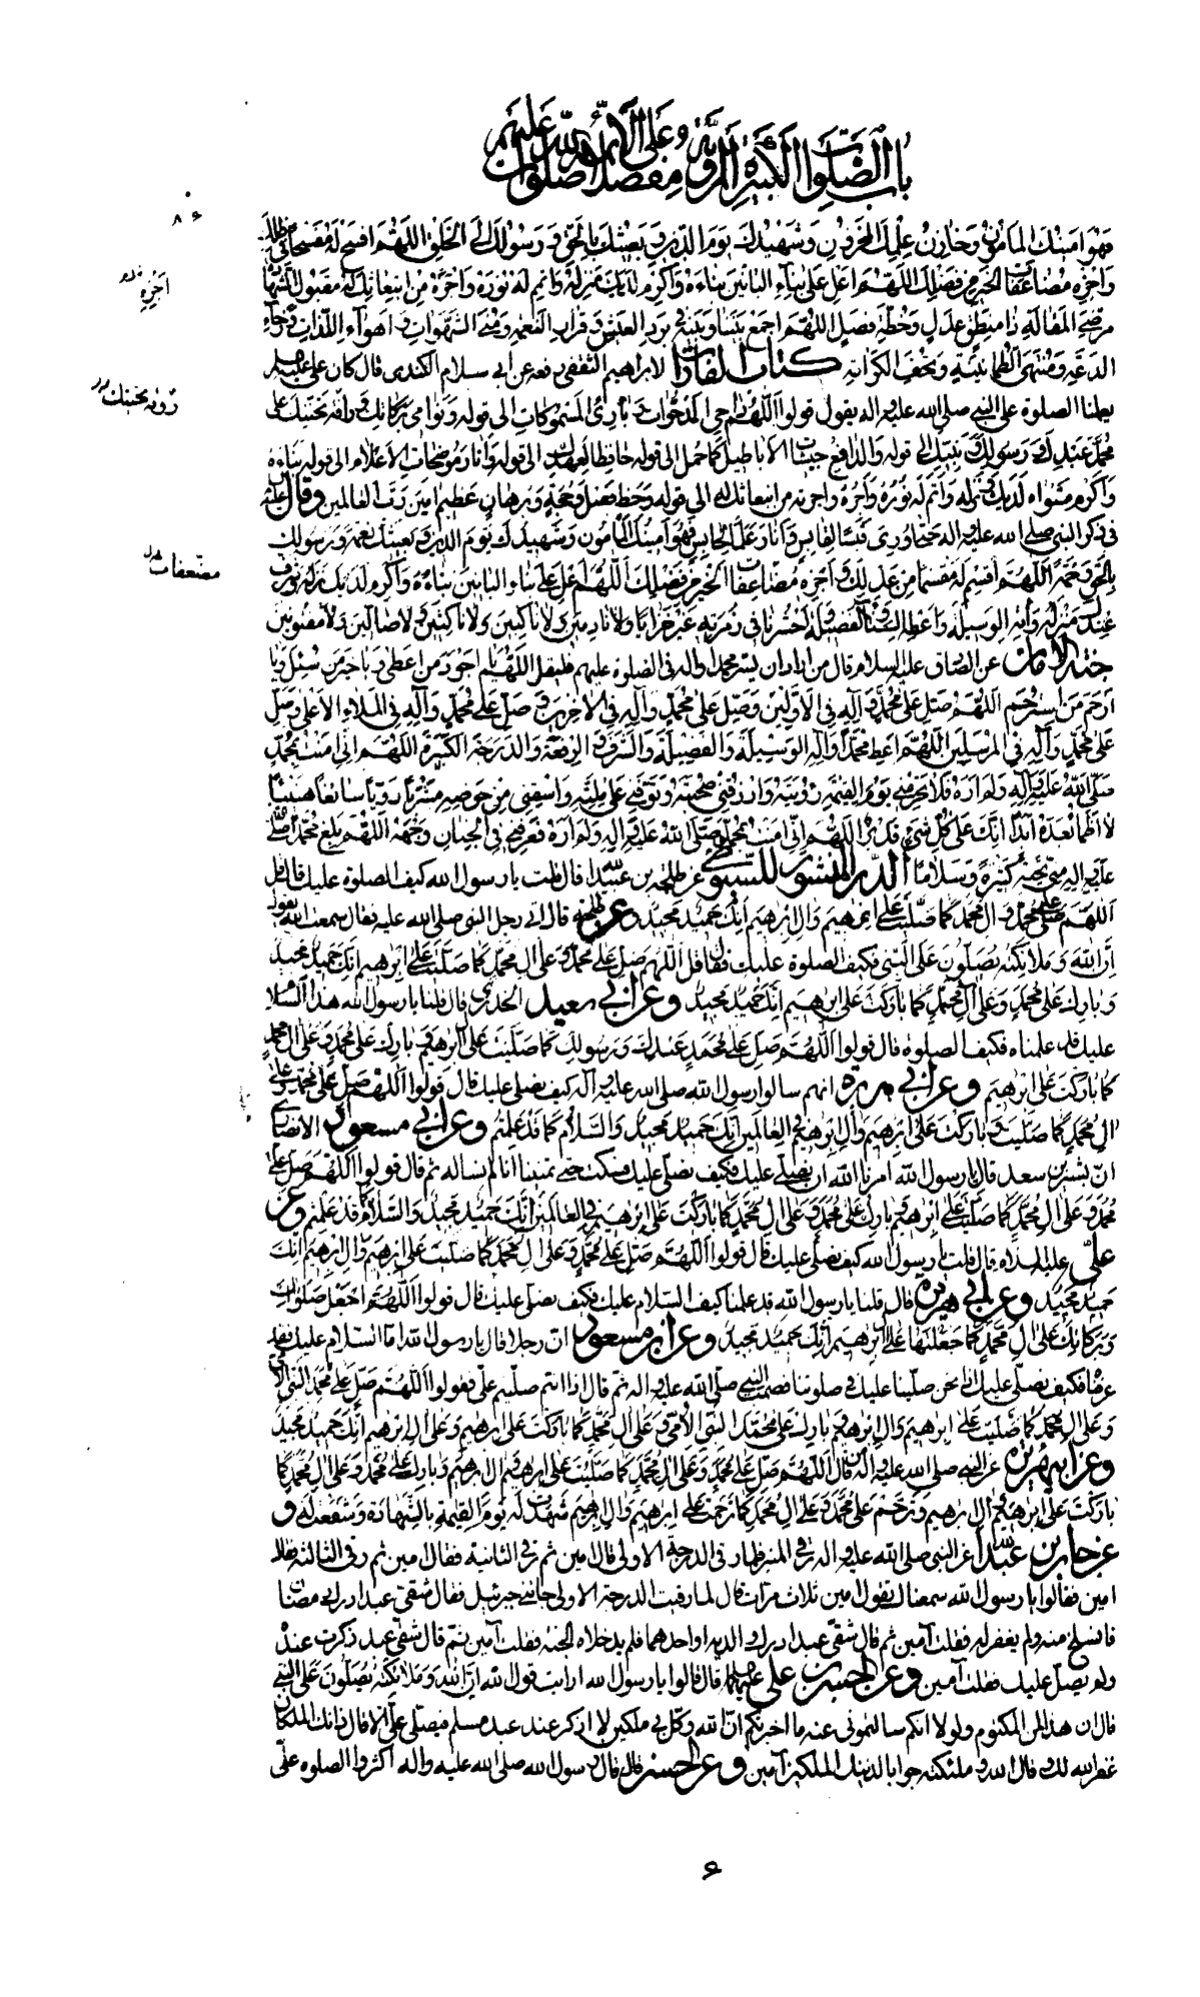 باب الصلوات الكبيرة المروية مفصلا وعلى الأئمة صلوات الله عليهم
٨٦
فهو امينك المأمون وخازن علمك المخزون وشهيدك يوم الدين وبعيثك بالحق ورسولك الى الخلق اللهم افسح له مفسحا فى ظلك
واجزه مضاعفات الخير من فضلك اللهم اعل على بناء البانين بناءه واكرم لديك منزلته واتمم له نوره واجزه من ابتعاثك له مقبول الشهادة
مرضي المقالة ذا منطق عدل وخطة فصل اللهم اجمع بيننا وبينه في برد العيش وقرار النعمة ومنى الشهوات واهواء اللذات ورخاء
الدعة ومنتهى الطمانينة وتحف الكرامة كتاب الغارات لابراهيم الثقفي رفعه عن ابي سلام الكندى قال كان علي عليه السلام
يعلمنا الصلوة على النبي صلى الله عليه واله يقول قولوا اللهم داحي المدحوات وبارئ المسموكات الى قوله ونوامي بركاتك ورافة تحننك على
محمد عبدك ورسولك ونبيك الى قوله والدافع جيشات الاباطيل كما حمل الى قوله حافظا لعهدك الى قوله وانار موضحات الاعلام الى قوله بناءه
واكرم مثواه لديك ونزله واتم له نوره واجره واجزه من ابتعاثك له الى قوله وخطة فصل وحجة وبرهان عظيم امين رب العالمين وقال
فى ذكر النبي صلى الله عليه واله حتى اورى قبسا لقابس وانار علما لحابس فهو امينك المأمون وشهيدك يوم الدين وبعيثك نعمة ورسولك
بالحق رحمة اللهم اقسم له مقسما من عدلك واجزه مضاعفات الخير من فضلك اللهم اعل على بناء البانين بناءه واكرم لديك نزله وشرف
عندك منزله وآته الوسيلة واعطه السناء والفضيلة واحشرنا فى زمرته غير خزايا ولا نادمين ولا ناكبين ولا ناكثين ولا ضالين ولا مفتونين
جنة الامان عن الصادق عليه السلام قال من اراد ان يسر محمدا واله فى الصلوة عليهم فليقل اللهم يا اجود من اعطى ويا خير من سئل ويا
ارحم من استرحم اللهم صل على محمد وآله في الاولين وصل على محمد وآله فى الاخرين وصل على محمد وآله فى الملاء الاعلى وصل
على محمد وآله في المرسلين اللهم اعط محمدا وآله الوسيلة والفضيلة والشرف والرفعة والدرجة الكبيرة اللهم انى امنت بمحمد
صلى الله عليه وآله ولم اره فلا تحرمني يوم القيمة رؤيته وارزقني صحبته وتوفني على ملته واسقني من حوضه مشربا رويا سائغا هنيئا
لا اظمأ بعده ابدا انك على كل شيء قدير اللهم انى امنت بمحمد صلى الله عليه واله ولم اره فعرفني في الجنان وجهه اللهم بلغ محمدا صلى
عليه واله مني تحية كثيرة وسلاما الدر المنثور للسيوطي عن طلحة بن عبيد الله قال قلت يا رسول الله كيف الصلوة عليك قال قل
اللهم صل على محمد وعلى ال محمد كما صليت على ابرهيم وال ابرهيم انك حميد مجيد وعن طلحة قال اتى رجل النبى صلى الله عليه فقال سمعت الله يقول
ان الله وملائكته يصلون على النبي فكيف الصلوة عليك فقال قل اللهم صل على محمد وعلى ال محمد كما صليت على ابرهيم انك حميد مجيد
وبارك على محمد وعلى آل محمد كما باركت على ابرهيم انك حميد مجيد وعن ابي سعيد الخدري قال قلنا يا رسول الله هذا السلام
عليك قد علمناه فكيف الصلوة قال قولوا اللهم صل على محمد عبدك ورسولك كما صليت على ابرهيم وبارك على محمد وعلى ال محمد
كما باركت على ابرهيم وعن ابي هريرة انهم سالوا رسول الله صلى الله عليه واله كيف نصلي عليك قال قولوا اللهم صل على محمد وعلى
ال محمد كما صليت وباركت على ابرهيم وال ابرهيم في العالمين انك حميد مجيد والسلام كما قد علمتم وعن ابي مسعود الانصاري
ان بشير بن سعد قال يا رسول الله امرنا الله ان نصلى عليك فكيف نصلي عليك فسكت حتى تمنينا انا لم نساله ثم قال قولوا اللهم صل على
محمد وعلى ال محمد كما صليت على ابرهيم وبارك على محمد وعلى ال محمد كما باركت على ابرهيم في العالمين انك حميد مجيد والسلام كما قد علمتم وعن
علي عليه السلام قال قلت يا رسول الله كيف نصلي عليك قال قولوا اللهم صل على محمد وعلى ال محمد كما صليت على ابرهيم وال ابرهيم انك
حميد مجيد وعن ابي هريرة قال قلنا يا رسول الله قد علمنا كيف السلام عليك فكيف نصلى عليك قال قولوا اللهم اجعل صلواتك
وبركاتك على ال محمد كما جعلتها على ال ابرهيم انك حميد مجيد وعن ابن مسعود ان رجلا قال يا رسول الله اما السلام عليك فقد
عرفنا فكيف نصلي عليك اذا نحن صلينا عليك في صلوتنا فصمت النبي صلى الله عليه واله ثم قال اذا انتم صليتم علي فقولوا اللهم صل على محمد النبي الامي
وعلى ال محمد كما صليت على ابرهيم وال ابرهيم وبارك على محمد النبى الامي وعلى ال محمد كما باركت على ابرهيم وعلى ال ابرهيم انك حميد مجيد
وعن ابى هريرة عن النبي صلى الله عليه واله من قال اللهم صل على محمد وعلى ال محمد كما صليت على ابرهيم وال ابرهيم وبارك على محمد وعلى ال محمد كما
باركت على ابرهيم وال ابرهيم وترحم على محمد وعلى ال محمد كما ترحمت على ابرهيم وال ابرهيم شهدت له يوم القيمة بالشهادة وشفعت له و
عن جابر بن عبد الله ان النبى صلى الله عليه واله رقي المنبر فلما رقى الدرجة الاولى قال امين ثم رقي الثانية فقال امين ثم رقى الثالثة فقال
امين فقالوا يا رسول الله سمعناك تقول امين ثلاث مرات قال لما رقيت الدرجة الاولى جائني جبرئيل فقال شقى عبد ادرك رمضان
فانسلخ منه ولم يغفر له فقلت آمين ثم قال شقي عبد ادرك والديه او احدهما فلم يدخلاه الجنة فقلت آمين ثم قال شقي عبد ذكرت عنده
ولم يصل عليك فقلت آمين وعن الحسن بن علي قال قالوا يا رسول الله ارايت قول الله ان الله وملائكته يصلون على النبي
قال ان هذا لمن المكتوم ولولا انكم سالتموني عنه ما اخبرتكم ان الله وكل بي ملكين لا اذكر عند عبد مسلم فيصلي علي الا قال ذانك الملكان
غفر الله لك وقال الله وملئكته جوابا لذينك الملكين آمين وعن الحسن قال قال رسول الله صلى الله عليه واله اكثروا الصلوة علي
٦